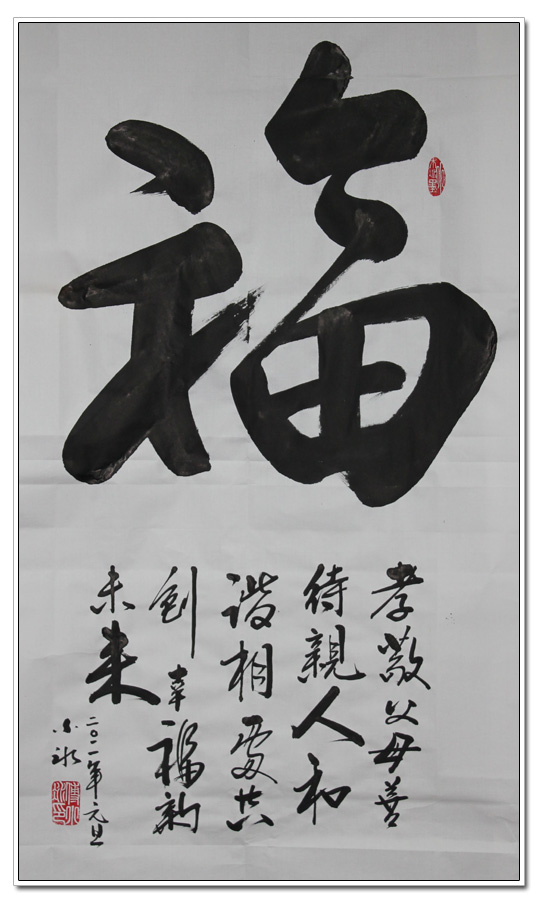 福
孝敬父母善
待親人和
諧相處共
創幸福新
未来
二〇一一年元旦
小冰